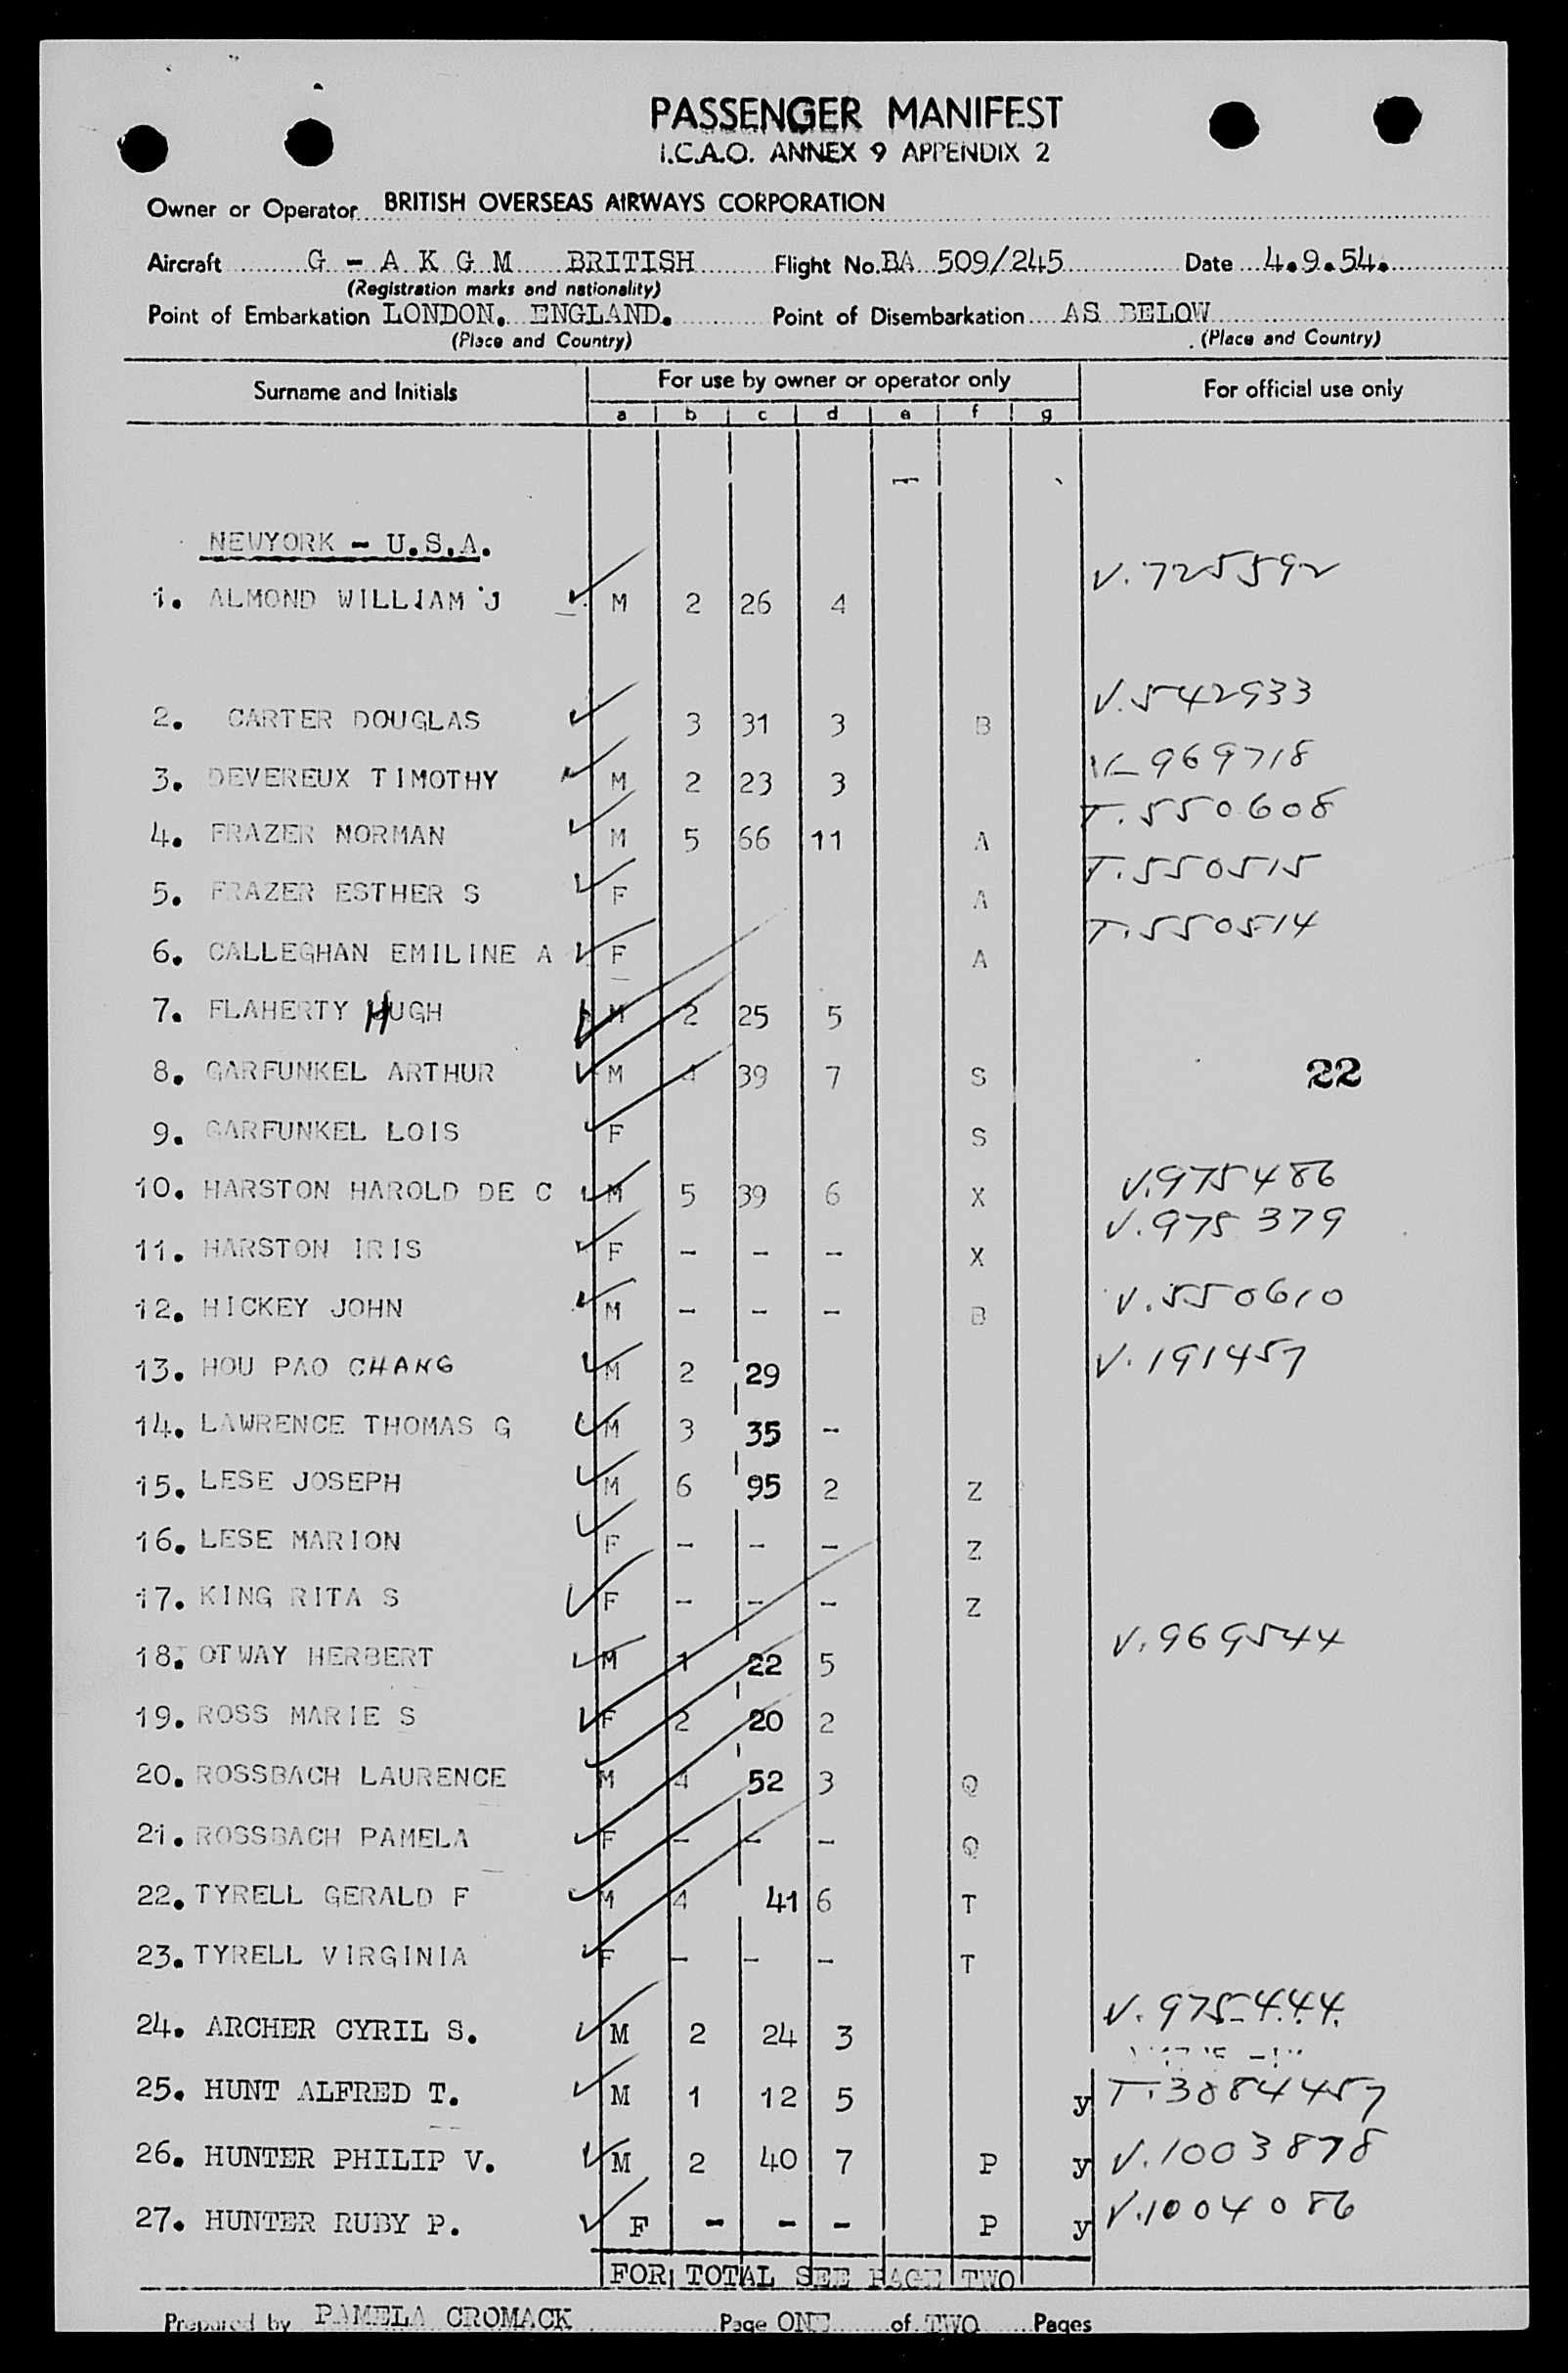 PASSENGER MANIFEST
I.C.A.O. ANNEX 9 APPENDIX 2
Owner or Operator BRITISH OVERSEAS AIRWAYS CORPORATION
Aircraft G - A K G M BRITISH Flight No. BA 509/245 Date 4.9.54.
(Registration marks and nationality)
Point of Embarkation LONDON. ENGLAND. Point of Disembarkation AS BELOW
(Place and Country) (Place and Country)
Surname and Initials For use by owner or operator only For official use only
a b c d e f g
NEWYORK - U.S.A.
1. ALMOND WILLIAM J M 2 26 4 V.725592
2. CARTER DOUGLAS 3 31 3 B V.542933
3. DEVEREUX TIMOTHY M 2 23 3 V 969718
4. FRAZER NORMAN M 5 66 11 A T.550608
5. FRAZER ESTHER S F A T.550515
6. CALLEGHAN EMILINE A F A T.550514
7. FLAHERTY HUGH M 2 25 5
8. GARFUNKEL ARTHUR M 4 39 7 S 22
9. GARFUNKEL LOIS F S
10. HARSTON HAROLD DE C M 5 39 6 X V.975486
11. HARSTON IRIS F - - - X V.975379
12. HICKEY JOHN M - - - B V.550610
13. HOU PAO CHANG M 2 29 V.191457
14. LAWRENCE THOMAS G M 3 35 -
15. LESE JOSEPH M 6 95 2 Z
16. LESE MARION F - - - Z
17. KING RITA S F - - - Z
18. OTWAY HERBERT M 1 22 5 V.969544
19. ROSS MARIE S F 2 20 2
20. ROSSBACH LAURENCE M 4 52 3 Q
21. ROSSBACH PAMELA F - - - Q
22. TYRELL GERALD F M 4 41 6 T
23. TYRELL VIRGINIA F - - - T
24. ARCHER CYRIL S. M 2 24 3 V.975444
25. HUNT ALFRED T. M 1 12 5 y T.3884457
26. HUNTER PHILIP V. M 2 40 7 P y V.1003878
27. HUNTER RUBY P. F - - - P y V.1004086
FOR TOTAL SEE PAGE TWO
Prepared by PAMELA CROMACK Page ONE of TWO Pages